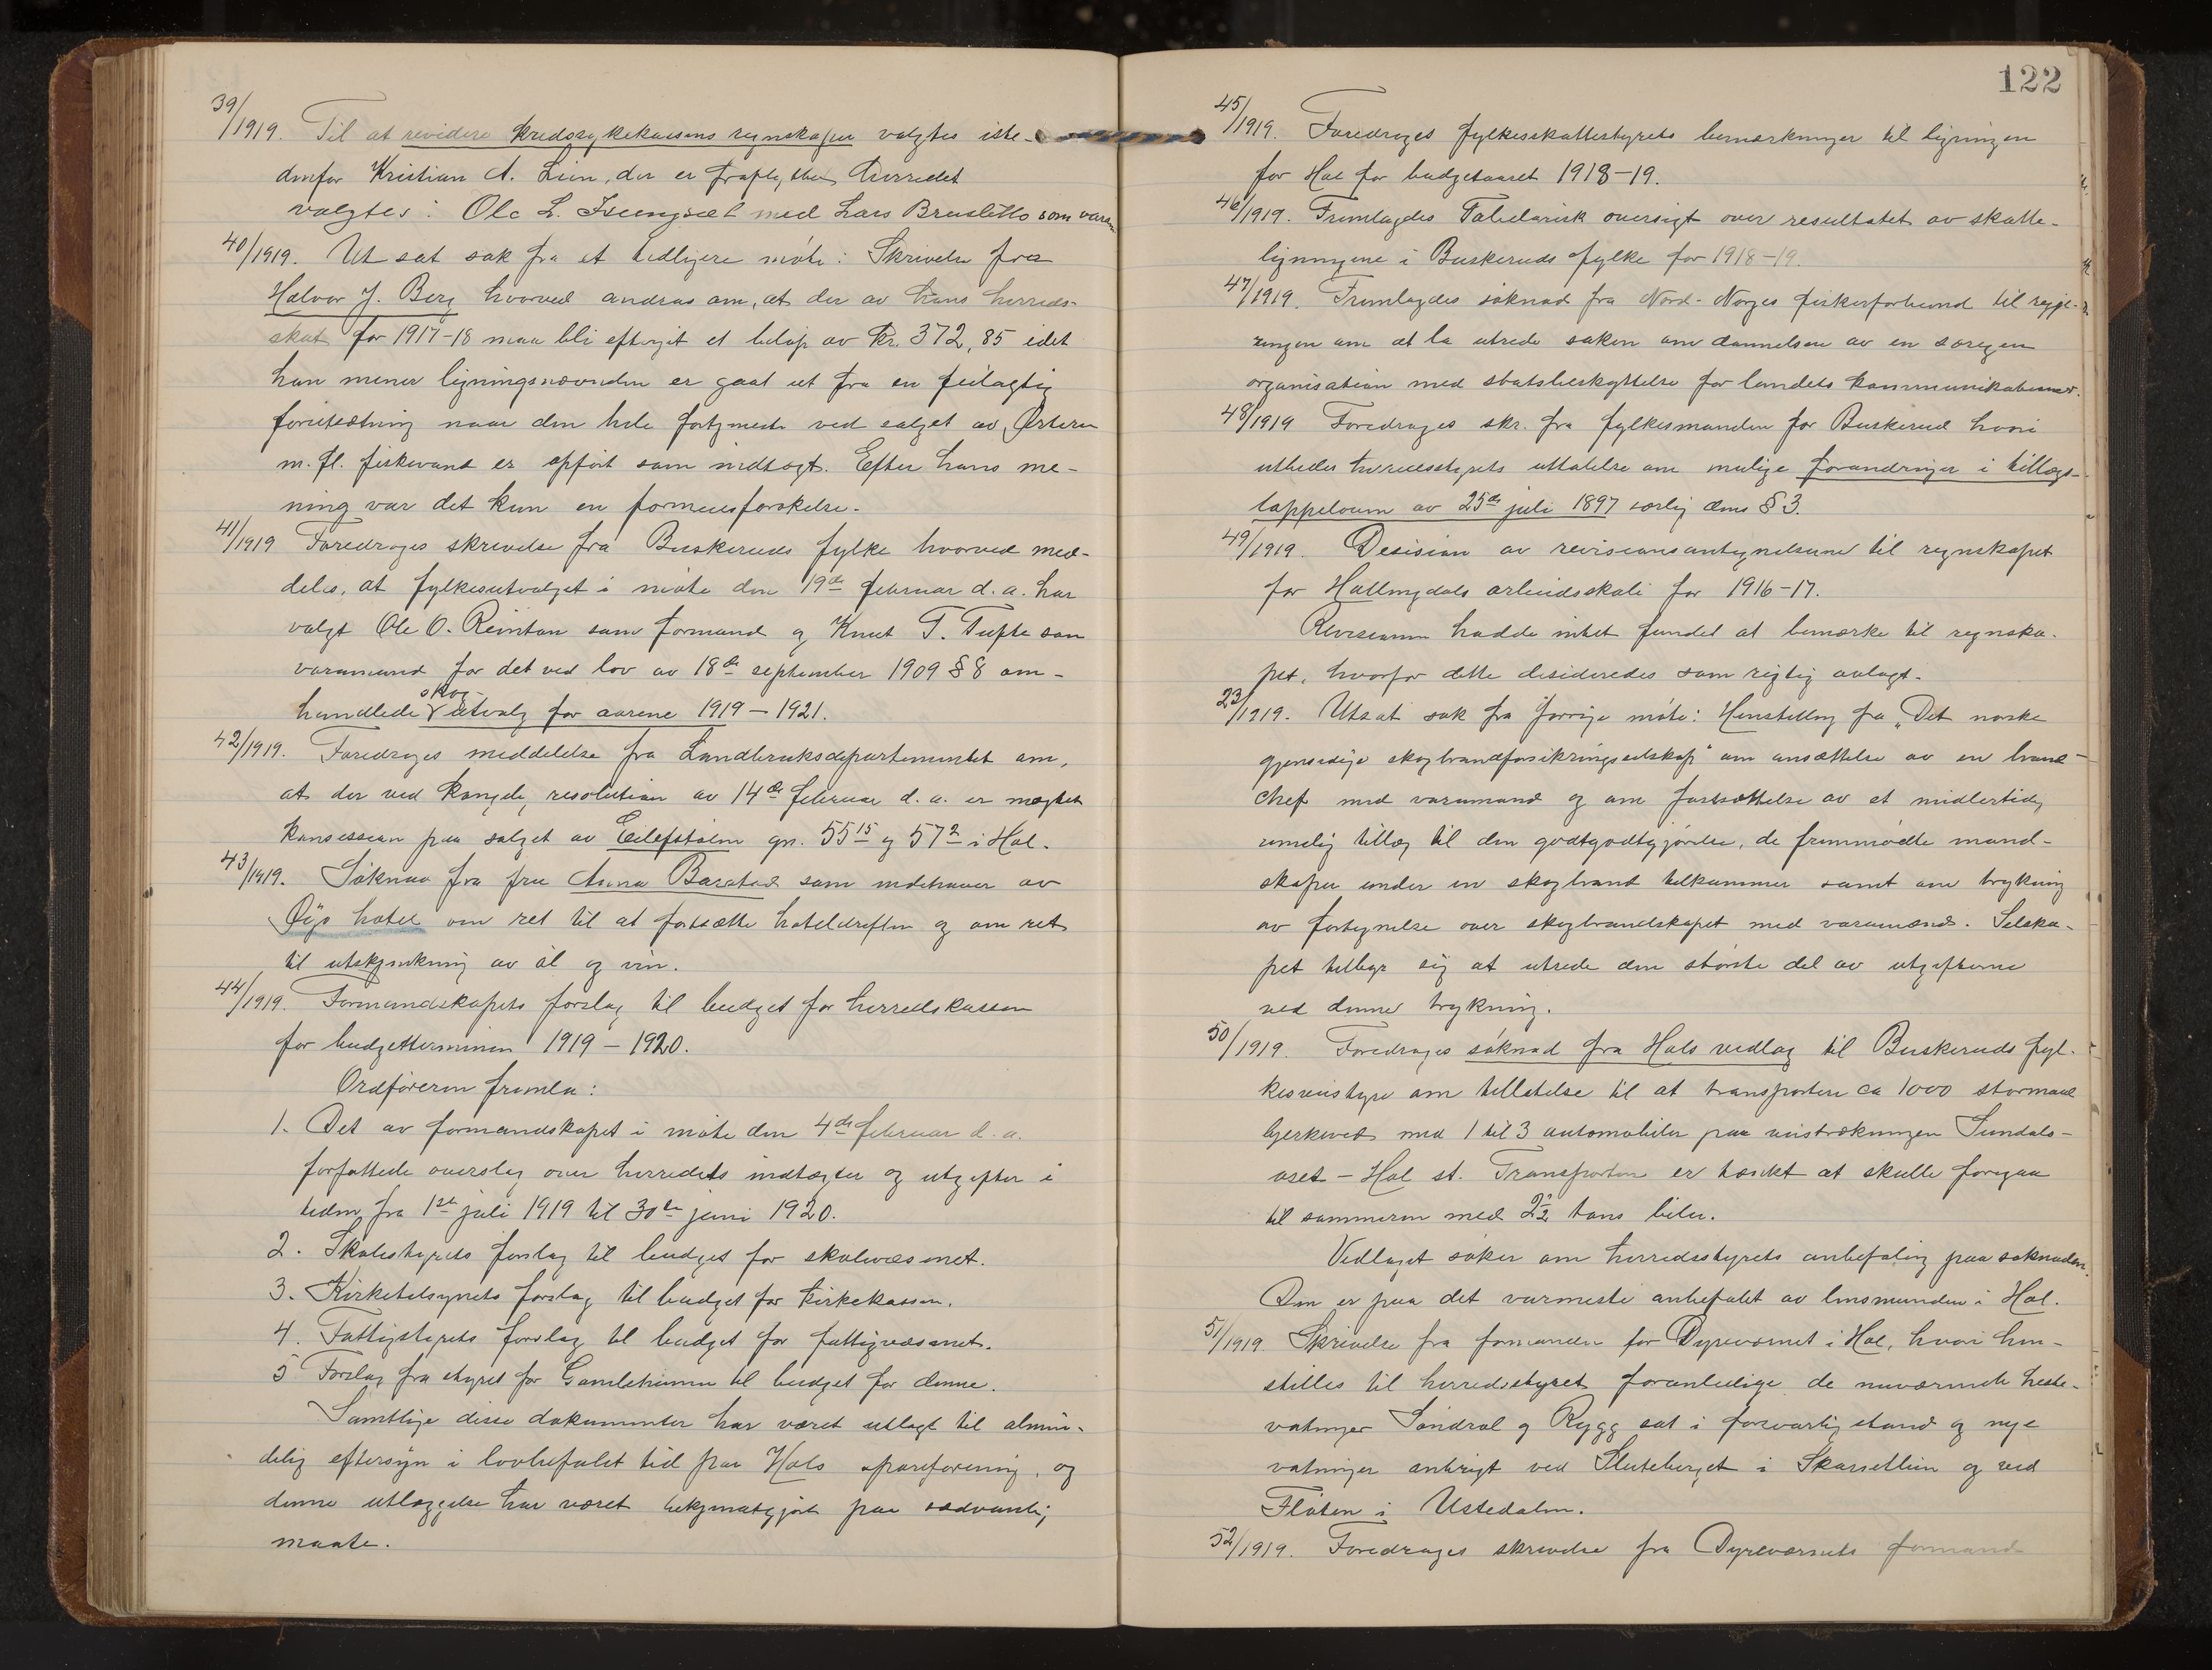 39/1919. Til at revidere kredssykekassens regnskaper valgtes iste-
denfor Kristian A. Lien, der er fraflyttet herredet
valgtes: Ole L. med Lars Brusletto som vara
40/1919. Utsat sak fra et tidligere møte: Skrivelse fra
Halvor J. Berg hvorved andras om, at der av hans herreds-
skat for 1917-18 maa bli eftergit et beløp av kr. 372,85 idet
han mener ligningsnævnden er gaat ut fra en feilagtig
forutsætning naar den hele fortjeneste ved salget av Ørteren
m. fl. fiskevand er opført som indtægt. Efter hans me-
ning var det kun en formuesforøkelse.
41/1919 Foredroges skrivelse fra Buskeruds fylke hvorved med-
deles, at fylkesutvalget i møte den 19de februar d. a. har
valgt Ole O. Reinton som formand og Knut T. Tufte som
varamand for det ved lov av 18de september 1909 § 8 om-
handlede skog-utvalg for aarene 1919 – 1921.
42/1919. Foredroges meddelelse fra Landbruksdepartementet om,
at der ved kongelig resolution av 14de februar d. a. er nægtet
konsession paa salget av Eilefstølen gn. 55 15 og 57 2 i Hol.
43/1919. Søknad fra fru Anna Barstad som indehaver av
Øyo hotel om ret til at fortsætte hoteldriften og om ret
til utskjenkning av øl og vin.
44/1919. Formandskapets forslag til budget for herredskassen
for budgetterminen 1919 – 1920.
Ordføreren fremla:
1. Det av formandskapet i møte den 4de februar d. a.
forfattede overslag over herredets indtægter og utgifter i
tiden fra 1ste juli 1919 til 30te juni 1920.
2. Skolestyrets forslag til budget for skolevæsenet.
3. Kirketilsynets forslag til budget for kirkekassen.
4. Fattigstyrets forslag til budget for fattigvæsenet.
5 Forslag fra styret for Gamlehimen til budget for denne.
Samtlige disse dokumenter har været utlagt til almin-
delig eftersyn i lovbefalet tid paa Hols spareforening, og
denne utlæggelse har været bekjendtgjort paa sædvanlig
maate.
122
45/1919. Foredroges fylkesskattestyrets bemerkninger til ligningen
for Hol for budgetaaret 1918–19.
46/1919. Fremlagdes Tabelarisk oversigt over resultatet av skatte-
ligningene i Buskeruds fylke for 1918–19.
47/1919. Fremlagdes søknad fra Nord-Norges fiskerforbund til regje-
ringen om at la utrede saken om dannelsen av en særegen
organisation med statsbeskyttelse for landets kommunikationer.
48/1919 Foredroges skr. fra fylkesmanden for Buskerud hvori
utbedes herredsstyrets uttalelse om mulige forandringer i tillægs-
lappeloven av 25de juli 1897 særlig dens § 3.
49/1919. Desision av revisionsantegnelserne til regnskapet
for Hallingdals arbeidsskole for 1916–17.
Revisionen hadde intet fundet at bemærke til regnska-
pet, hvorfor dette desideredes som rigtig avlagt.
23/1919. Utsat sak fra forrige møte: Henstilling fra „Det norske
gjensidige skogbrandforsikringsselskap" om ansættelse av en brand-
chef med varamand og om fastsættelse av et midlertidig
rimelig tillæg til den godtgodtgjørelse, de fremmødte mand-
skaper under en skogbrand tilkommer samt om trykning
av fortegnelse over skogbrandskapet med varamænd. Selska-
pet tilbyr sig at utrede den største del av utgifterne
ved denne trykning.
50/1919. Foredroges søknad fra Hols vedlag til Buskeruds fyl-
kesveistyre om tillatelse til at transportere ca 1000 stormaal
bjerkeved med 1 til 3 automobiler paa veistrækningen Sundals-
oset – Hol st. Transporten er tænkt at skulle foregaa
til sommeren med 2½ tons biler.
Vedlaget søker om herredsstyrets anbefaling paa søknaden.
Den er paa det varmeste anbefalet av lensmanden i Hol.
51/1919. Skrivelse fra formanden for Dyrevernet i Hol, hvori hen-
stilles til herredsstyret foranledige de nuværende heste-
vatninger Søndral og Rygg sat i forsvarlig stand og nye
vatninger anbrigt ved Sluteberget i Skarsetlien og ved
Fløten i Ustedalen.
52/1919. Foredroges skrivelse fra Dyrevernets formand